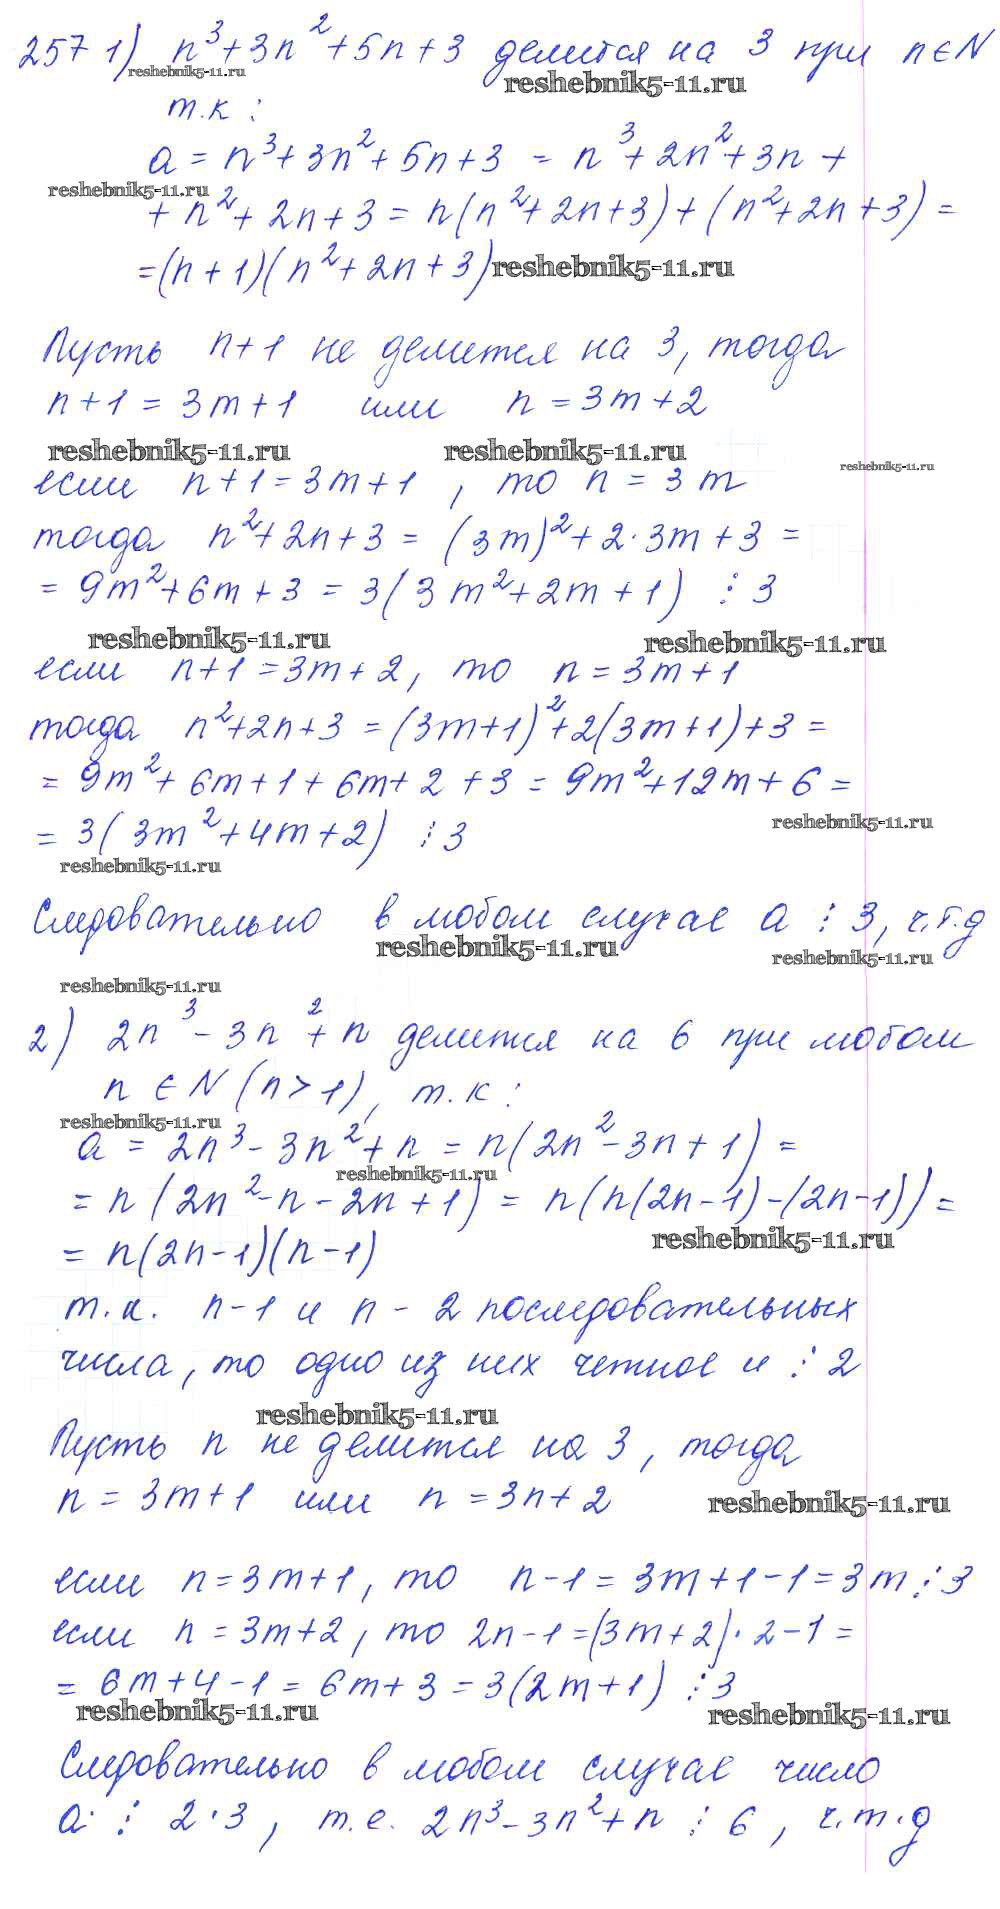 257 1) n³+3n²+5n+3 делится на 3 при n∈N
reshebnik5-11.ru reshebnik5-11.ru
т.к :
a = n³+3n²+5n+3 = n³+2n²+3n +
reshebnik5-11.ru
+ n²+2n+3 = n(n²+2n+3)+(n²+2n+3) =
=(n+1)(n²+2n+3) reshebnik5-11.ru
Пусть n+1 не делится на 3, тогда
n+1 = 3m+1 или n = 3m+2
reshebnik5-11.ru reshebnik5-11.ru reshebnik5-11.ru
если n+1=3m+1 , то n = 3m
тогда n²+2n+3 = (3m)²+2·3m+3 =
= 9m²+6m+3 = 3(3m²+2m+1) ⋮ 3
reshebnik5-11.ru reshebnik5-11.ru
если n+1=3m+2, то n=3m+1
тогда n²+2n+3 =(3m+1)²+2(3m+1)+3 =
= 9m²+6m+1+6m+2+3 = 9m²+12m+6 =
reshebnik5-11.ru
= 3(3m²+4m+2) ⋮ 3
reshebnik5-11.ru
Следовательно в любом случае a ⋮ 3, ч.т.д
reshebnik5-11.ru reshebnik5-11.ru
reshebnik5-11.ru
2) 2n³-3n²+n делится на 6 при любом
n ∈ N (n>1), т.к :
reshebnik5-11.ru
a = 2n³-3n²+n = n(2n²-3n+1) =
reshebnik5-11.ru
= n(2n²-n-2n+1) = n(n(2n-1)-(2n-1)) =
reshebnik5-11.ru
= n(2n-1)(n-1)
т.к. n-1 и n-2 последовательных
числа, то одно из них четное и ⋮ 2
reshebnik5-11.ru
Пусть n не делится на 3, тогда
n = 3m+1 или n = 3n+2 reshebnik5-11.ru
если n=3m+1, то n-1 = 3m+1-1=3m ⋮ 3
если n = 3m+2, то 2n-1=(3m+2)·2-1 =
= 6m+4-1 = 6m+3 = 3(2m+1) ⋮ 3
reshebnik5-11.ru reshebnik5-11.ru
Следовательно в любом случае число
a ⋮ 2·3, т.е. 2n³-3n²+n ⋮ 6, ч.т.д